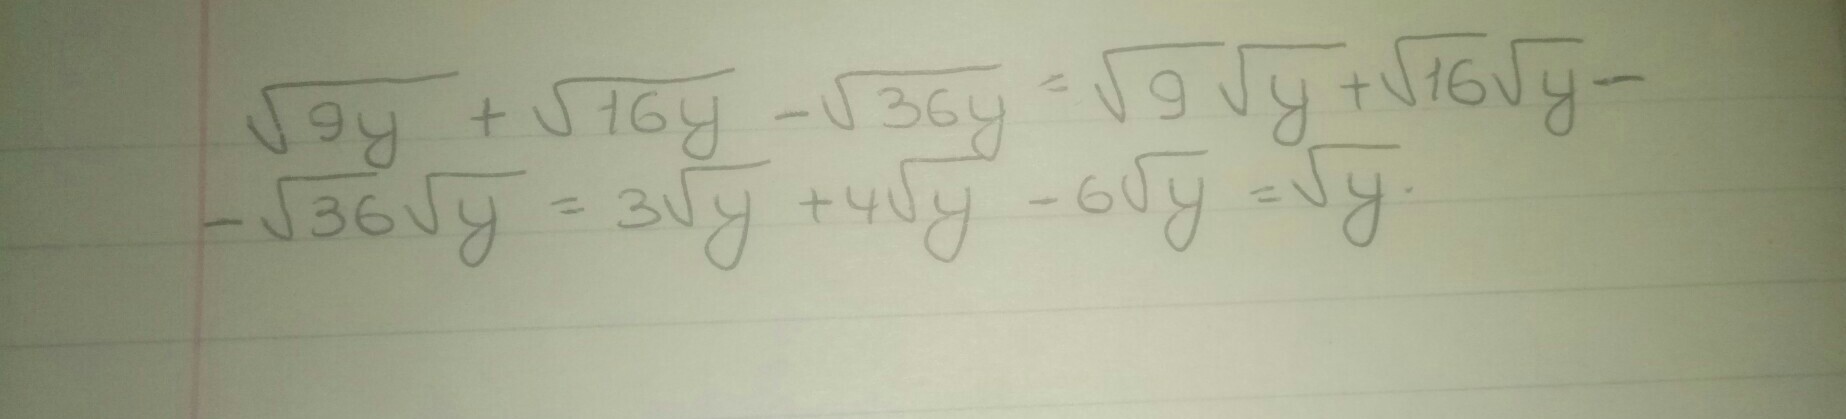 √9y + √16y - √36y = √9 √y + √16 √y -
- √36 √y = 3√y + 4√y - 6√y = √y.